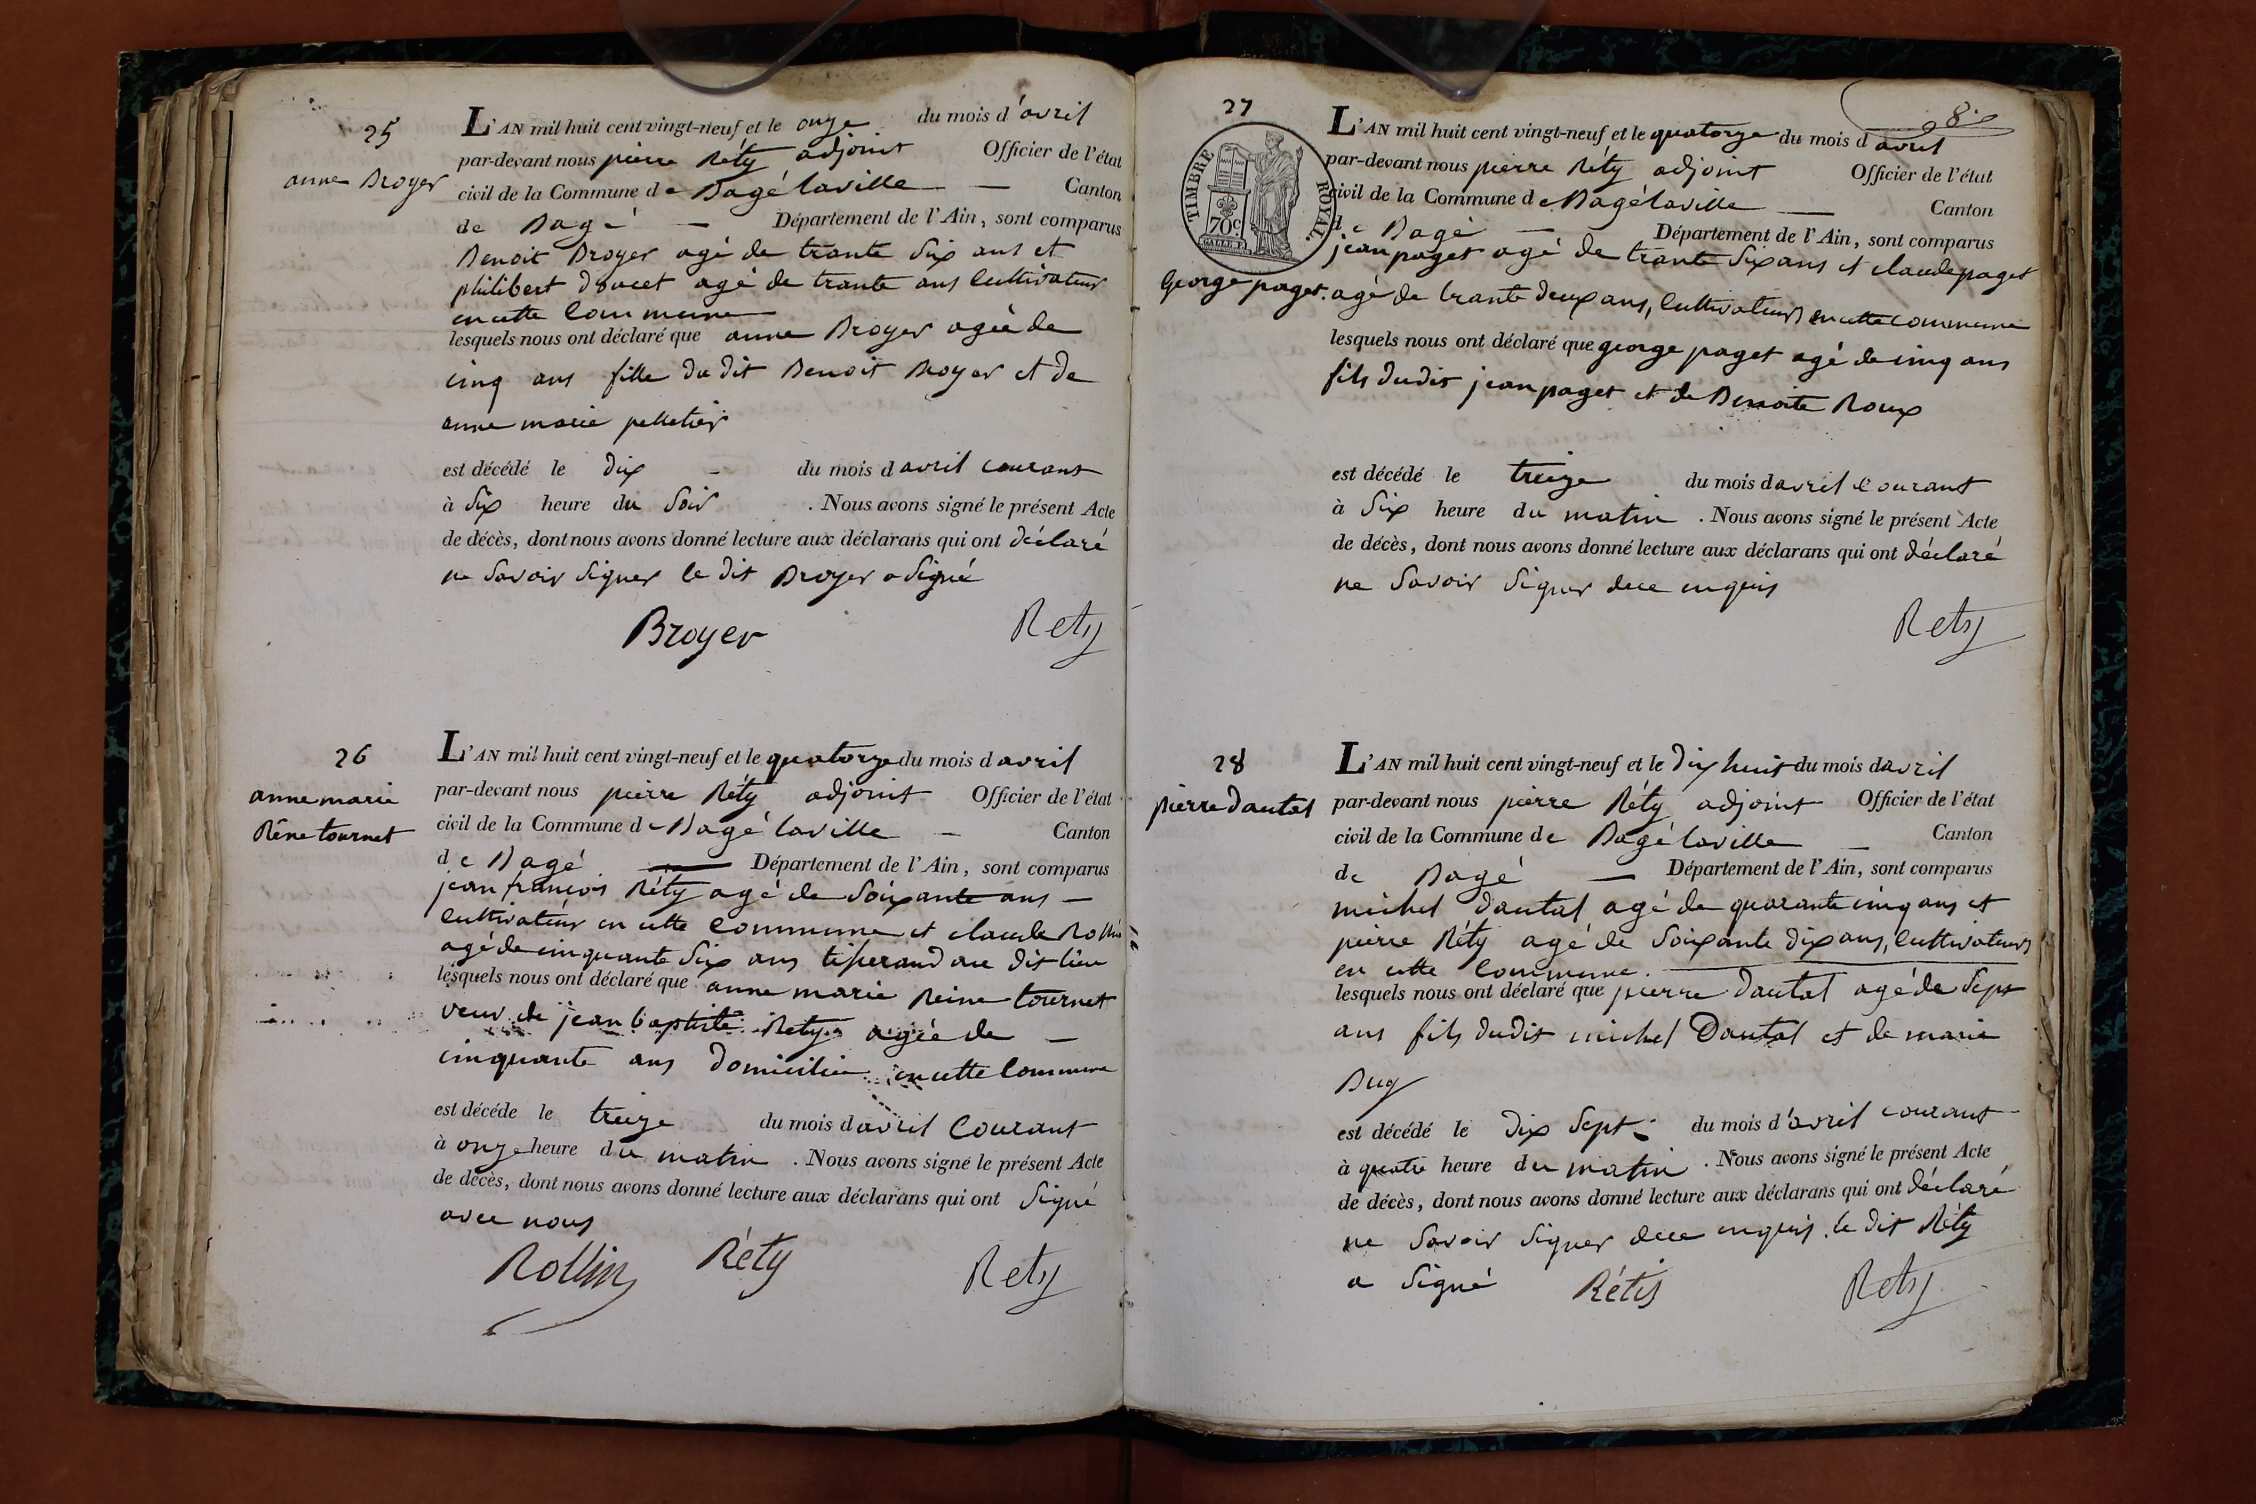 25
anne Broyer
L'AN mil huit cent vingt-neuf et le onze du mois d'avril
par-devant nous pierre Réty adjoint Officier de l'état
civil de la Commune de Bagé laville — Canton
de Bagé — Département de l'Ain, sont comparus
Benoit Broyer agé de trante Six ans et
philibert doucet agé de trante ans Cultivateur
en cette Commune
lesquels nous ont déclaré que anne Broyer agée de
cinq ans fille du dit Benoit Broyer et de
anne marie pelletier
est décédé le dix — du mois d avril courant
à Six heure du Soir . Nous avons signé le présent Acte
de décès, dont nous avons donné lecture aux déclarans qui ont déclaré
ne Savoir Signer le dit Broyer a Signé
Broyer Rety
26
anne marie
Rêne tournet
L'AN mil huit cent vingt-neuf et le quatorze du mois d avril
par-devant nous pierre Réty adjoint Officier de l'état
civil de la Commune de Bagé laville — Canton
de Bagé — Département de l'Ain, sont comparus
jean françois Réty agé de Soixante ans —
Cultivateur en cette Commune et claude Rollin
agé de cinquante Six ans tisserand au dit lieu
lesquels nous ont déclaré que anne marie Reine tournet
veuv de jean baptiste Rety agée de —
cinquante ans domiciliée en cette Commune
est décédé le treize du mois d avril Courant
à onze heure du matin . Nous avons signé le présent Acte
de décès, dont nous avons donné lecture aux déclarans qui ont Signé
avec nous
Rollin Réty Rety
8
27
TIMBRE ROYAL.
70c.
george paget
L'AN mil huit cent vingt-neuf et le quatorze du mois d avril
par-devant nous pierre Réty adjoint Officier de l'état
civil de la Commune de Bagé laville — Canton
de Bagé — Département de l'Ain, sont comparus
jean paget agé de trante Six ans et claude paget
agé de trante deux ans, Cultivateurs en cette commune
lesquels nous ont déclaré que george paget agé de cinq ans
fils dudit jean paget et de Benoite Roux
est décédé le treize du mois d avril courant
à Six heure du matin . Nous avons signé le présent Acte
de décès, dont nous avons donné lecture aux déclarans qui ont déclaré
ne Savoir Signer de ce enquis
Rety
28
pierre dautal
L'AN mil huit cent vingt-neuf et le dix huit du mois d avril
par-devant nous pierre Réty adjoint Officier de l'état
civil de la Commune de Bagé laville — Canton
de Bagé — Département de l'Ain, sont comparus
michel dautal agé de quarante cinq ans et
pierre Réty agé de Soixante dix ans, Cultivateurs
en cette Commune.
lesquels nous ont déclaré que pierre dautal agé de Sept
ans fils dudit michel Dautal et de marie
Buy
est décédé le dix Sept du mois d'avril courant
à quatre heure du matin . Nous avons signé le présent Acte
de décès, dont nous avons donné lecture aux déclarans qui ont déclaré
ne Savoir Signer de ce enquis. le dit Réty
a Signé Rétis Rety